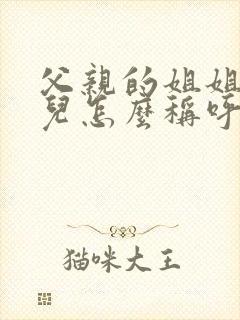 父親的姐姐
兒怎麼稱呼
猫咪大王